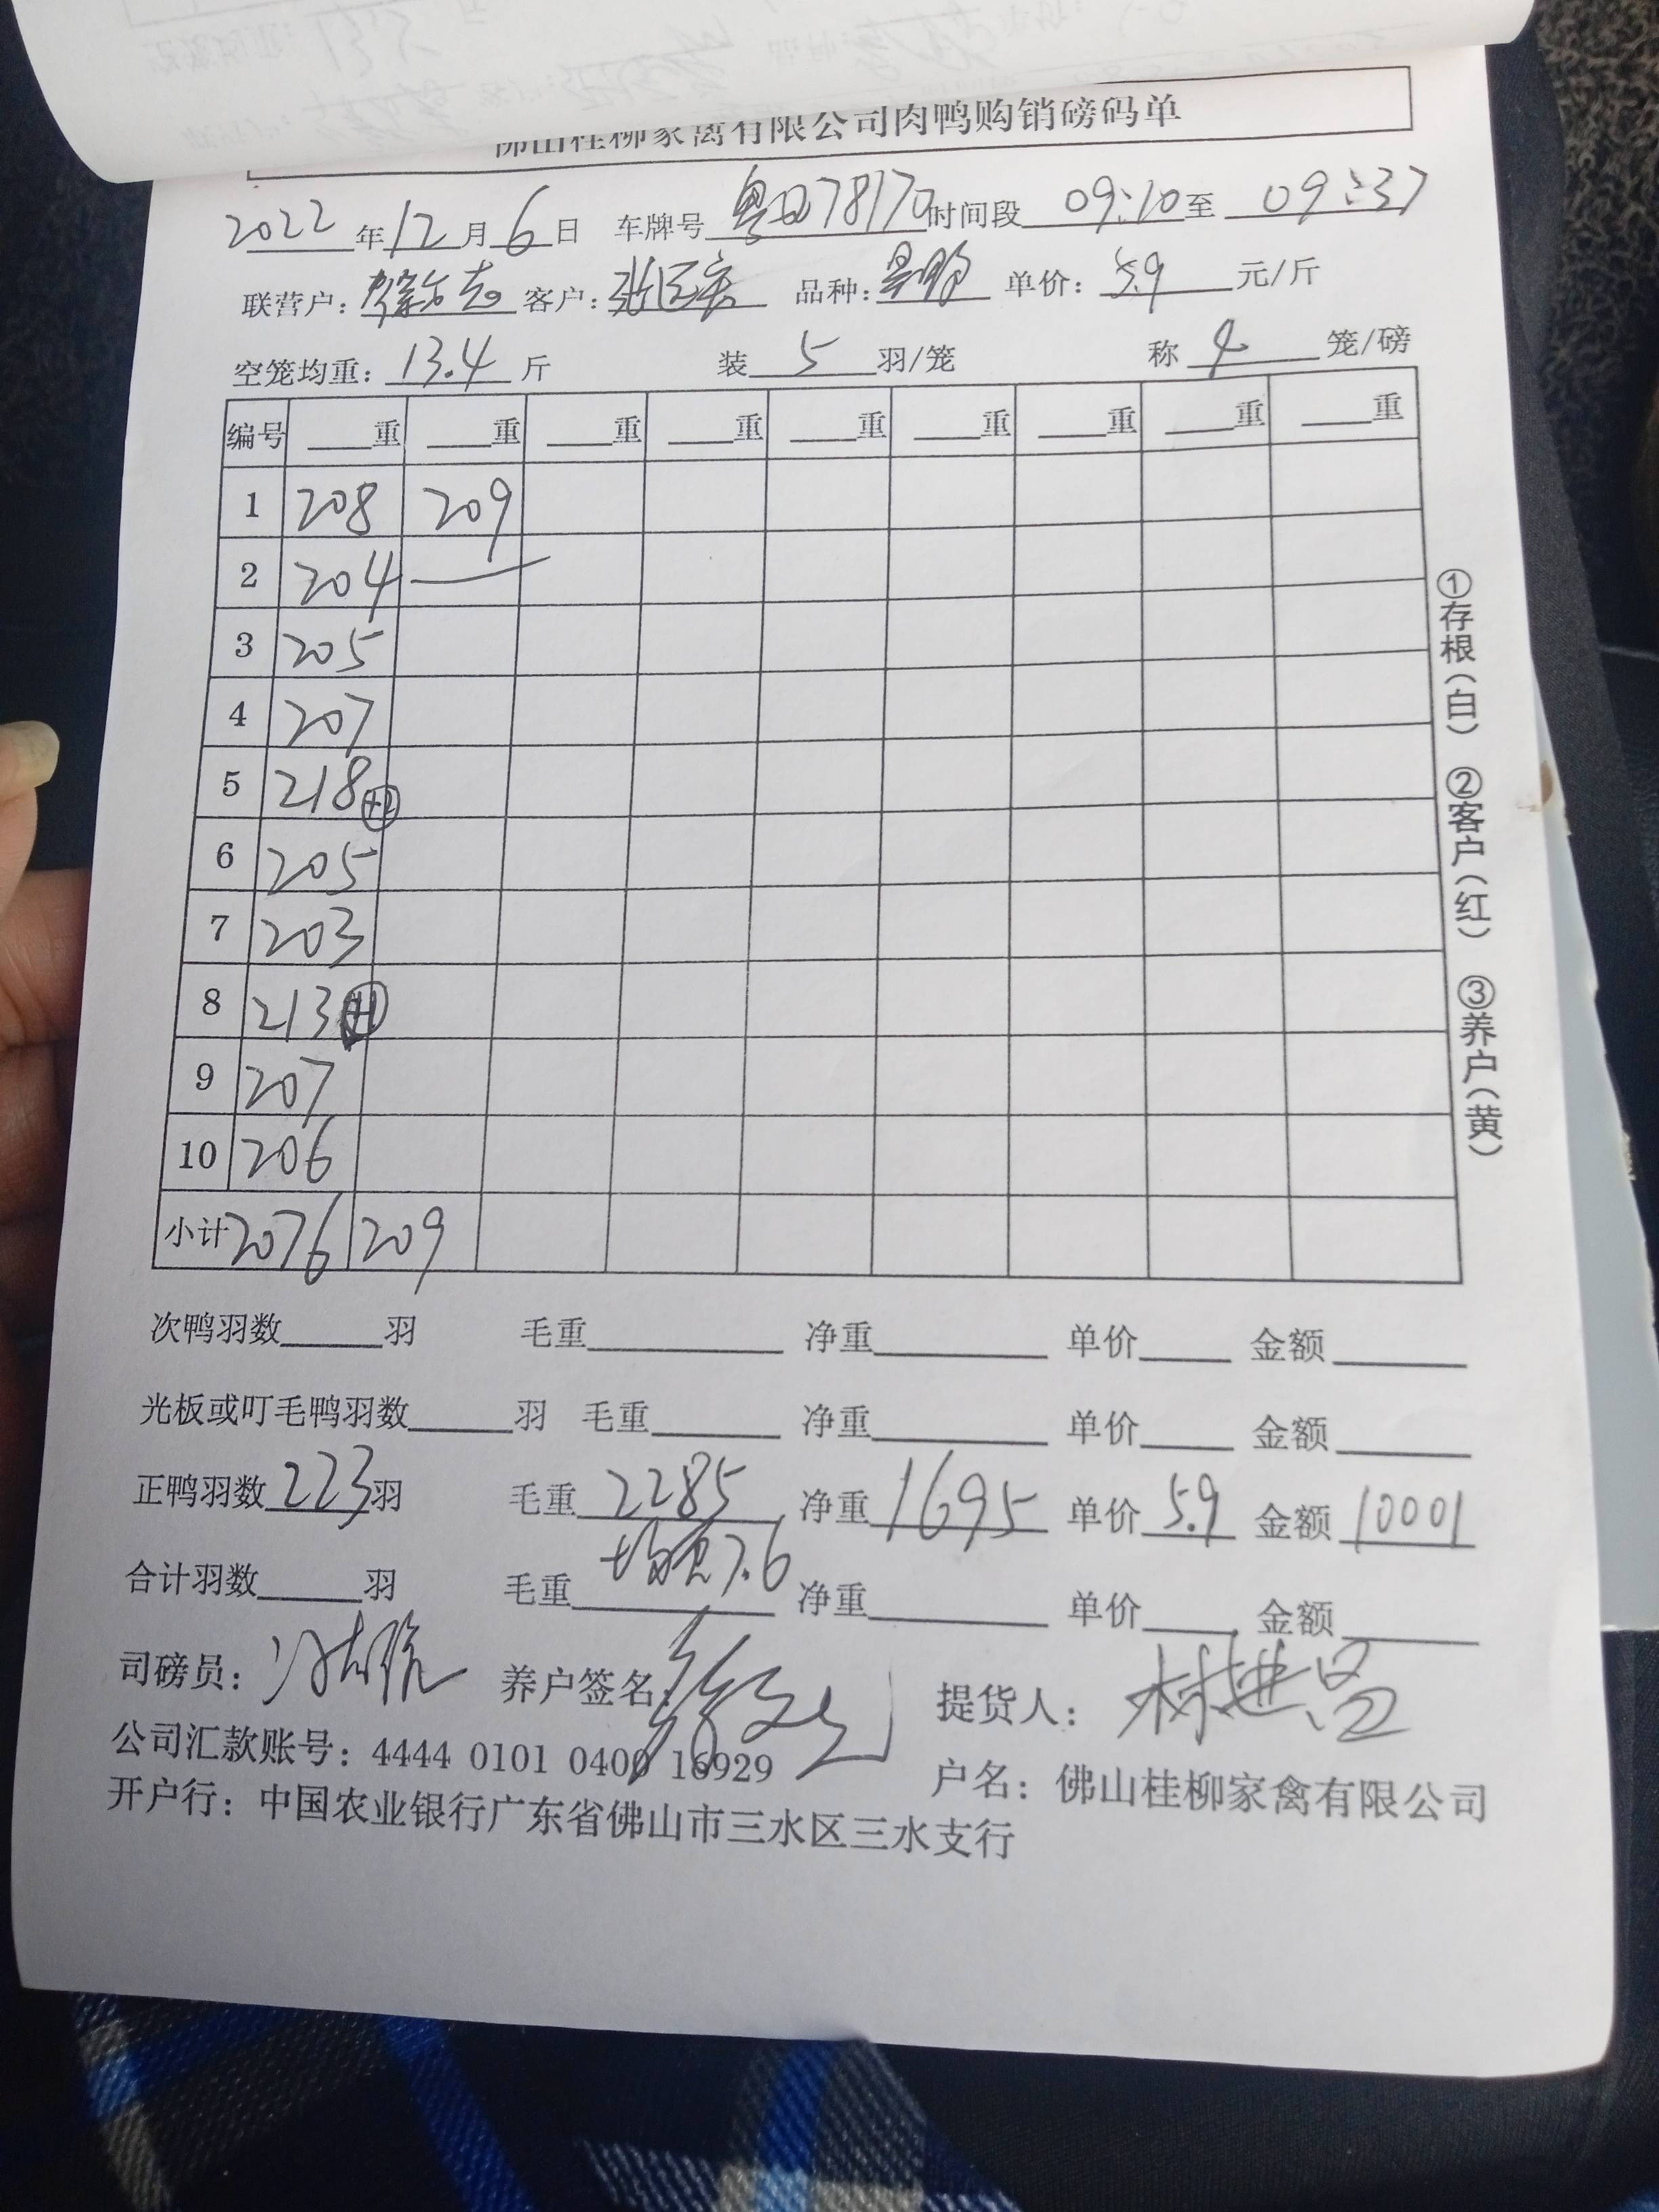 佛山桂柳家禽有限公司肉鸭购销磅码单
2022年12月6日 车牌号 78170 时间段 09:10至 09:37
联营户: 客户: 品种: 单价: 5.9 元/斤
空笼均重: 13.4 斤 装 5 羽/笼 称 4 笼/磅
编号 重 重 重 重 重 重 重 重 重
1 208 209
2 204 —
3 205
4 207
5 218 +2
6 205
7 203
8 213 +1
9 207
10 206
小计 2076 209
次鸭羽数 羽 毛重 净重 单价 金额
光板或叮毛鸭羽数 羽 毛重 净重 单价 金额
正鸭羽数 223 羽 毛重 2285 净重 1695 单价 5.9 金额 10001
均重7.6
合计羽数 羽 毛重 净重 单价 金额
司磅员: 养户签名: 提货人:
公司汇款账号: 4444 0101 0400 16929 户名: 佛山桂柳家禽有限公司
开户行: 中国农业银行广东省佛山市三水区三水支行
①存根(白) ②客户(红) ③养户(黄)